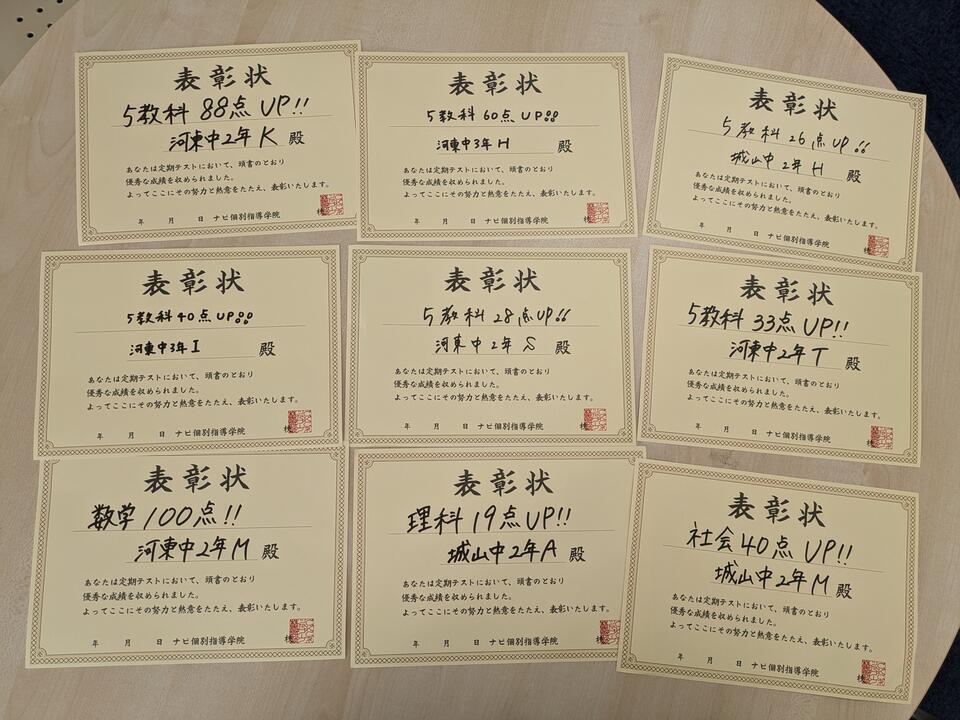 表彰状
5教科 88点 UP!!
河東中2年 K 殿
あなたは定期テストにおいて、頭書のとおり
優秀な成績を収められました。
よってここにその努力と熱意をたたえ、表彰いたします。
年 月 日 ナビ個別指導学院
表彰状
5教科 60点 UP!!!
河東中3年 H 殿
あなたは定期テストにおいて、頭書のとおり
優秀な成績を収められました。
よってここにその努力と熱意をたたえ、表彰いたします。
年 月 日 ナビ個別指導学院
表彰状
5教科 26点 UP!!
城山中 2年 H 殿
あなたは定期テストにおいて、頭書のとおり
優秀な成績を収められました。
よってここにその努力と熱意をたたえ、表彰いたします。
年 月 日 ナビ個別指導学院
表彰状
5教科 40点 UP!!!
河東中3年 I 殿
あなたは定期テストにおいて、頭書のとおり
優秀な成績を収められました。
よってここにその努力と熱意をたたえ、表彰いたします。
年 月 日 ナビ個別指導学院
表彰状
5教科 28点UP!!
河東中2年 S 殿
あなたは定期テストにおいて、頭書のとおり
優秀な成績を収められました。
よってここにその努力と熱意をたたえ、表彰いたします。
年 月 日 ナビ個別指導学院
表彰状
5教科 33点 UP!!
河東中2年 T 殿
あなたは定期テストにおいて、頭書のとおり
優秀な成績を収められました。
よってここにその努力と熱意をたたえ、表彰いたします。
年 月 日 ナビ個別指導学院
表彰状
数学 100点!!
河東中2年 M 殿
あなたは定期テストにおいて、頭書のとおり
優秀な成績を収められました。
よってここにその努力と熱意をたたえ、表彰いたします。
年 月 日 ナビ個別指導学院
表彰状
理科 19点UP!!
城山中2年 A 殿
あなたは定期テストにおいて、頭書のとおり
優秀な成績を収められました。
よってここにその努力と熱意をたたえ、表彰いたします。
年 月 日 ナビ個別指導学院
表彰状
社会 40点 UP!!
城山中2年 M 殿
あなたは定期テストにおいて、頭書のとおり
優秀な成績を収められました。
よってここにその努力と熱意をたたえ、表彰いたします。
年 月 日 ナビ個別指導学院